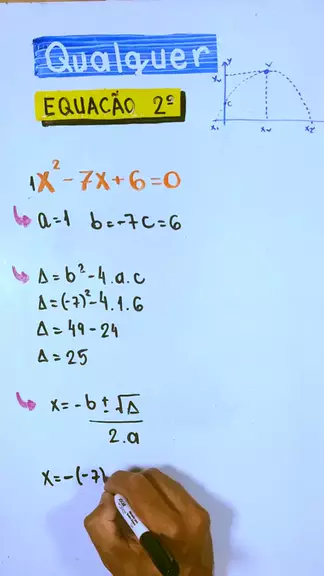 Qualquer
EQUACÃO 2º
1x² - 7x + 6 = 0
a = 1 b = -7 c = 6
Δ = b² - 4.a.c
Δ = (-7)² - 4.1.6
Δ = 49 - 24
Δ = 25
x = -b ± √Δ
2.a
x = -(-7)